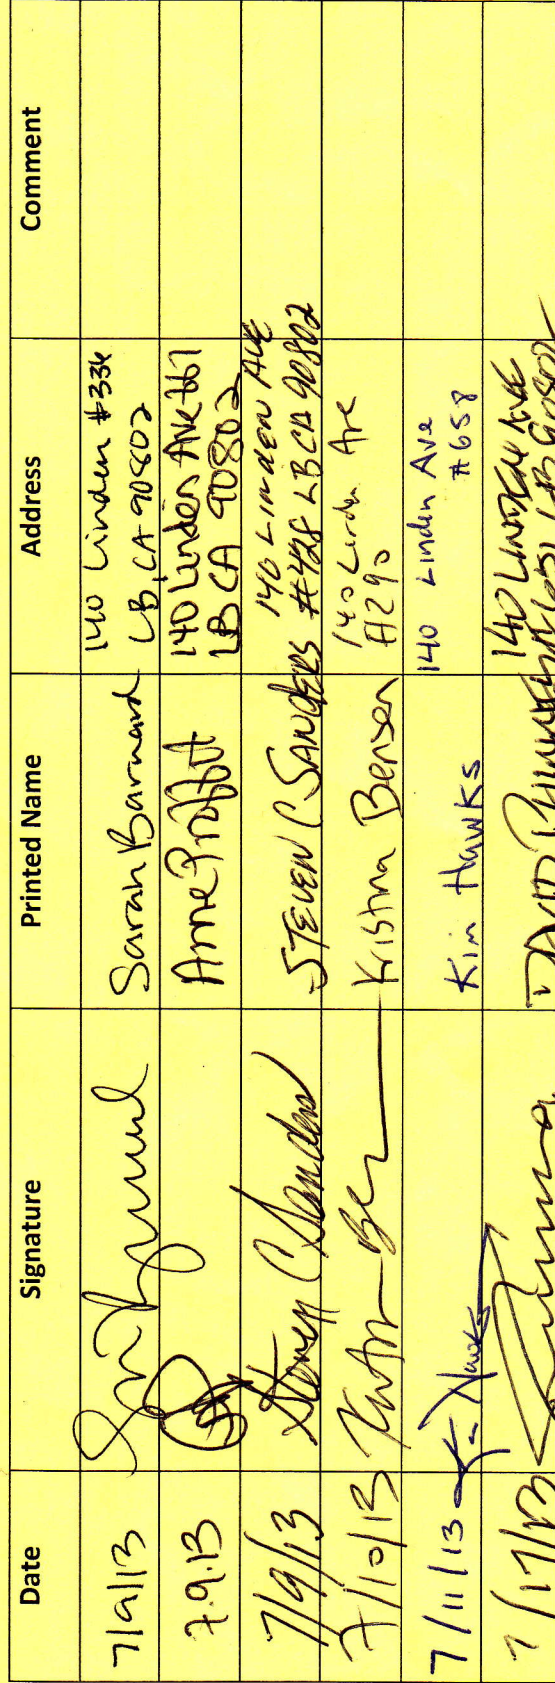 Date Signature Printed Name Address Comment
7/9/13 Sarah Barnard 140 Linden #334
LB, CA 90802
7.9.13 Anne Proffit 140 Linden Ave
LB CA 90802
7/9/13 Steven C Sanders STEVEN C SANDERS 140 LINDEN AVE
#428 LB CA 90802
7/10/13 Kristina Bensen 140 Linden Ave
#290
7/11/13 K. Hawks Kim Hawks 140 Linden Ave
#658
7/17/13 DAVID 140 LINDEN AVE
LB 90802